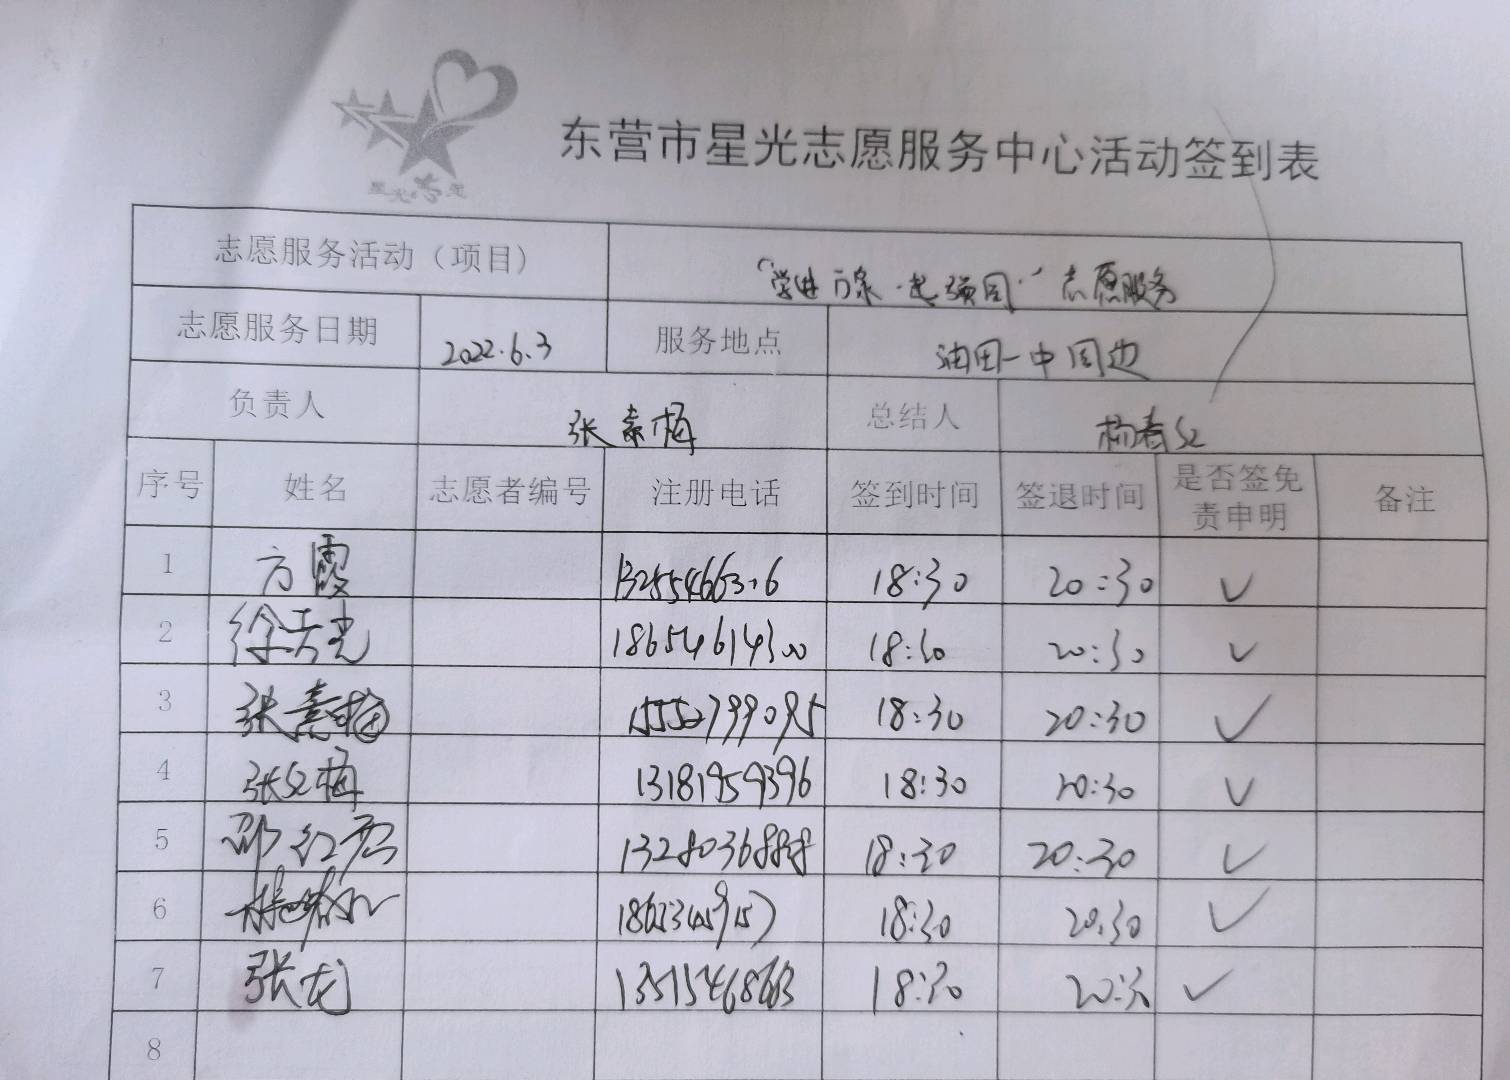 星光志愿
东营市星光志愿服务中心活动签到表
志愿服务活动（项目） “学进万家·一起强国·”志愿服务
志愿服务日期 2022.6.3 服务地点 油田一中周边
负责人 张素梅 总结人
序号 姓名 志愿者编号 注册电话 签到时间 签退时间 是否签免责申明 备注
1 方霞 18:30 20:30 ✓
2 徐天光 18654614300 18:30 20:30 ✓
3 张素梅 15552799095 18:30 20:30 ✓
4 张父梅 13181959396 18:30 20:30 ✓
5 邵红岩 13280368888 18:30 20:30 ✓
6 18:30 20:30 ✓
7 张龙 13515468663 18:30 20:30 ✓
8